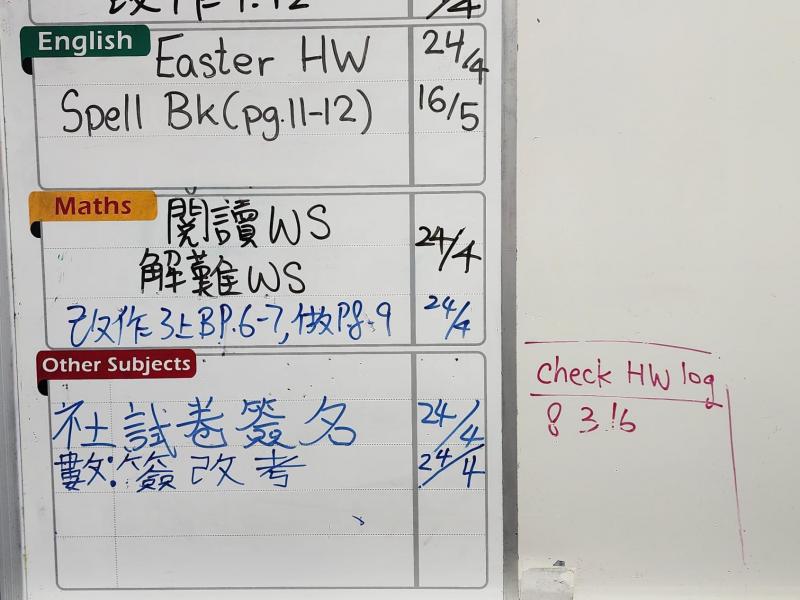 改作
24/4
English
Easter HW 24/4
Spell Bk(pg.11-12) 16/5
Maths
閱讀WS
解難WS 24/4
改作3上B P.6-7,做P8-9 24/4
Other Subjects
社試卷簽名 24/4
數:簽改考 24/4
check HW log
8 3 16